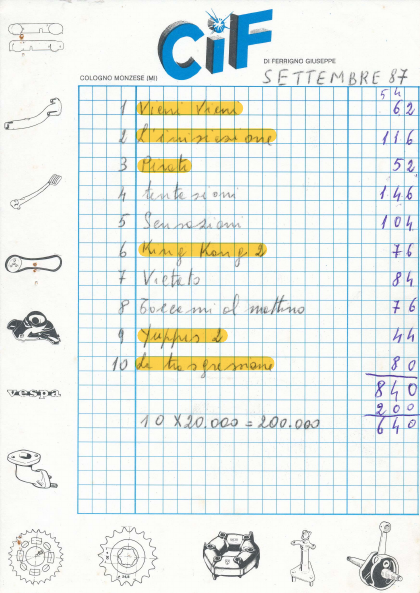 CiF
DI FERRIGNO GIUSEPPE
COLOGNO MONZESE (MI)
SETTEMBRE 87
54
1 Vieni Vieni 62
2 L'iniziazione 116
3 Pirati 52
4 tentazioni 146
5 Sensazioni 104
6 King Kong 2 76
7 Vietato 84
8 Toccami al mattino 76
9 Yuppies 2 44
10 La trasgressione 80
840
200
10 X 20.000 = 200.000 640
vespa